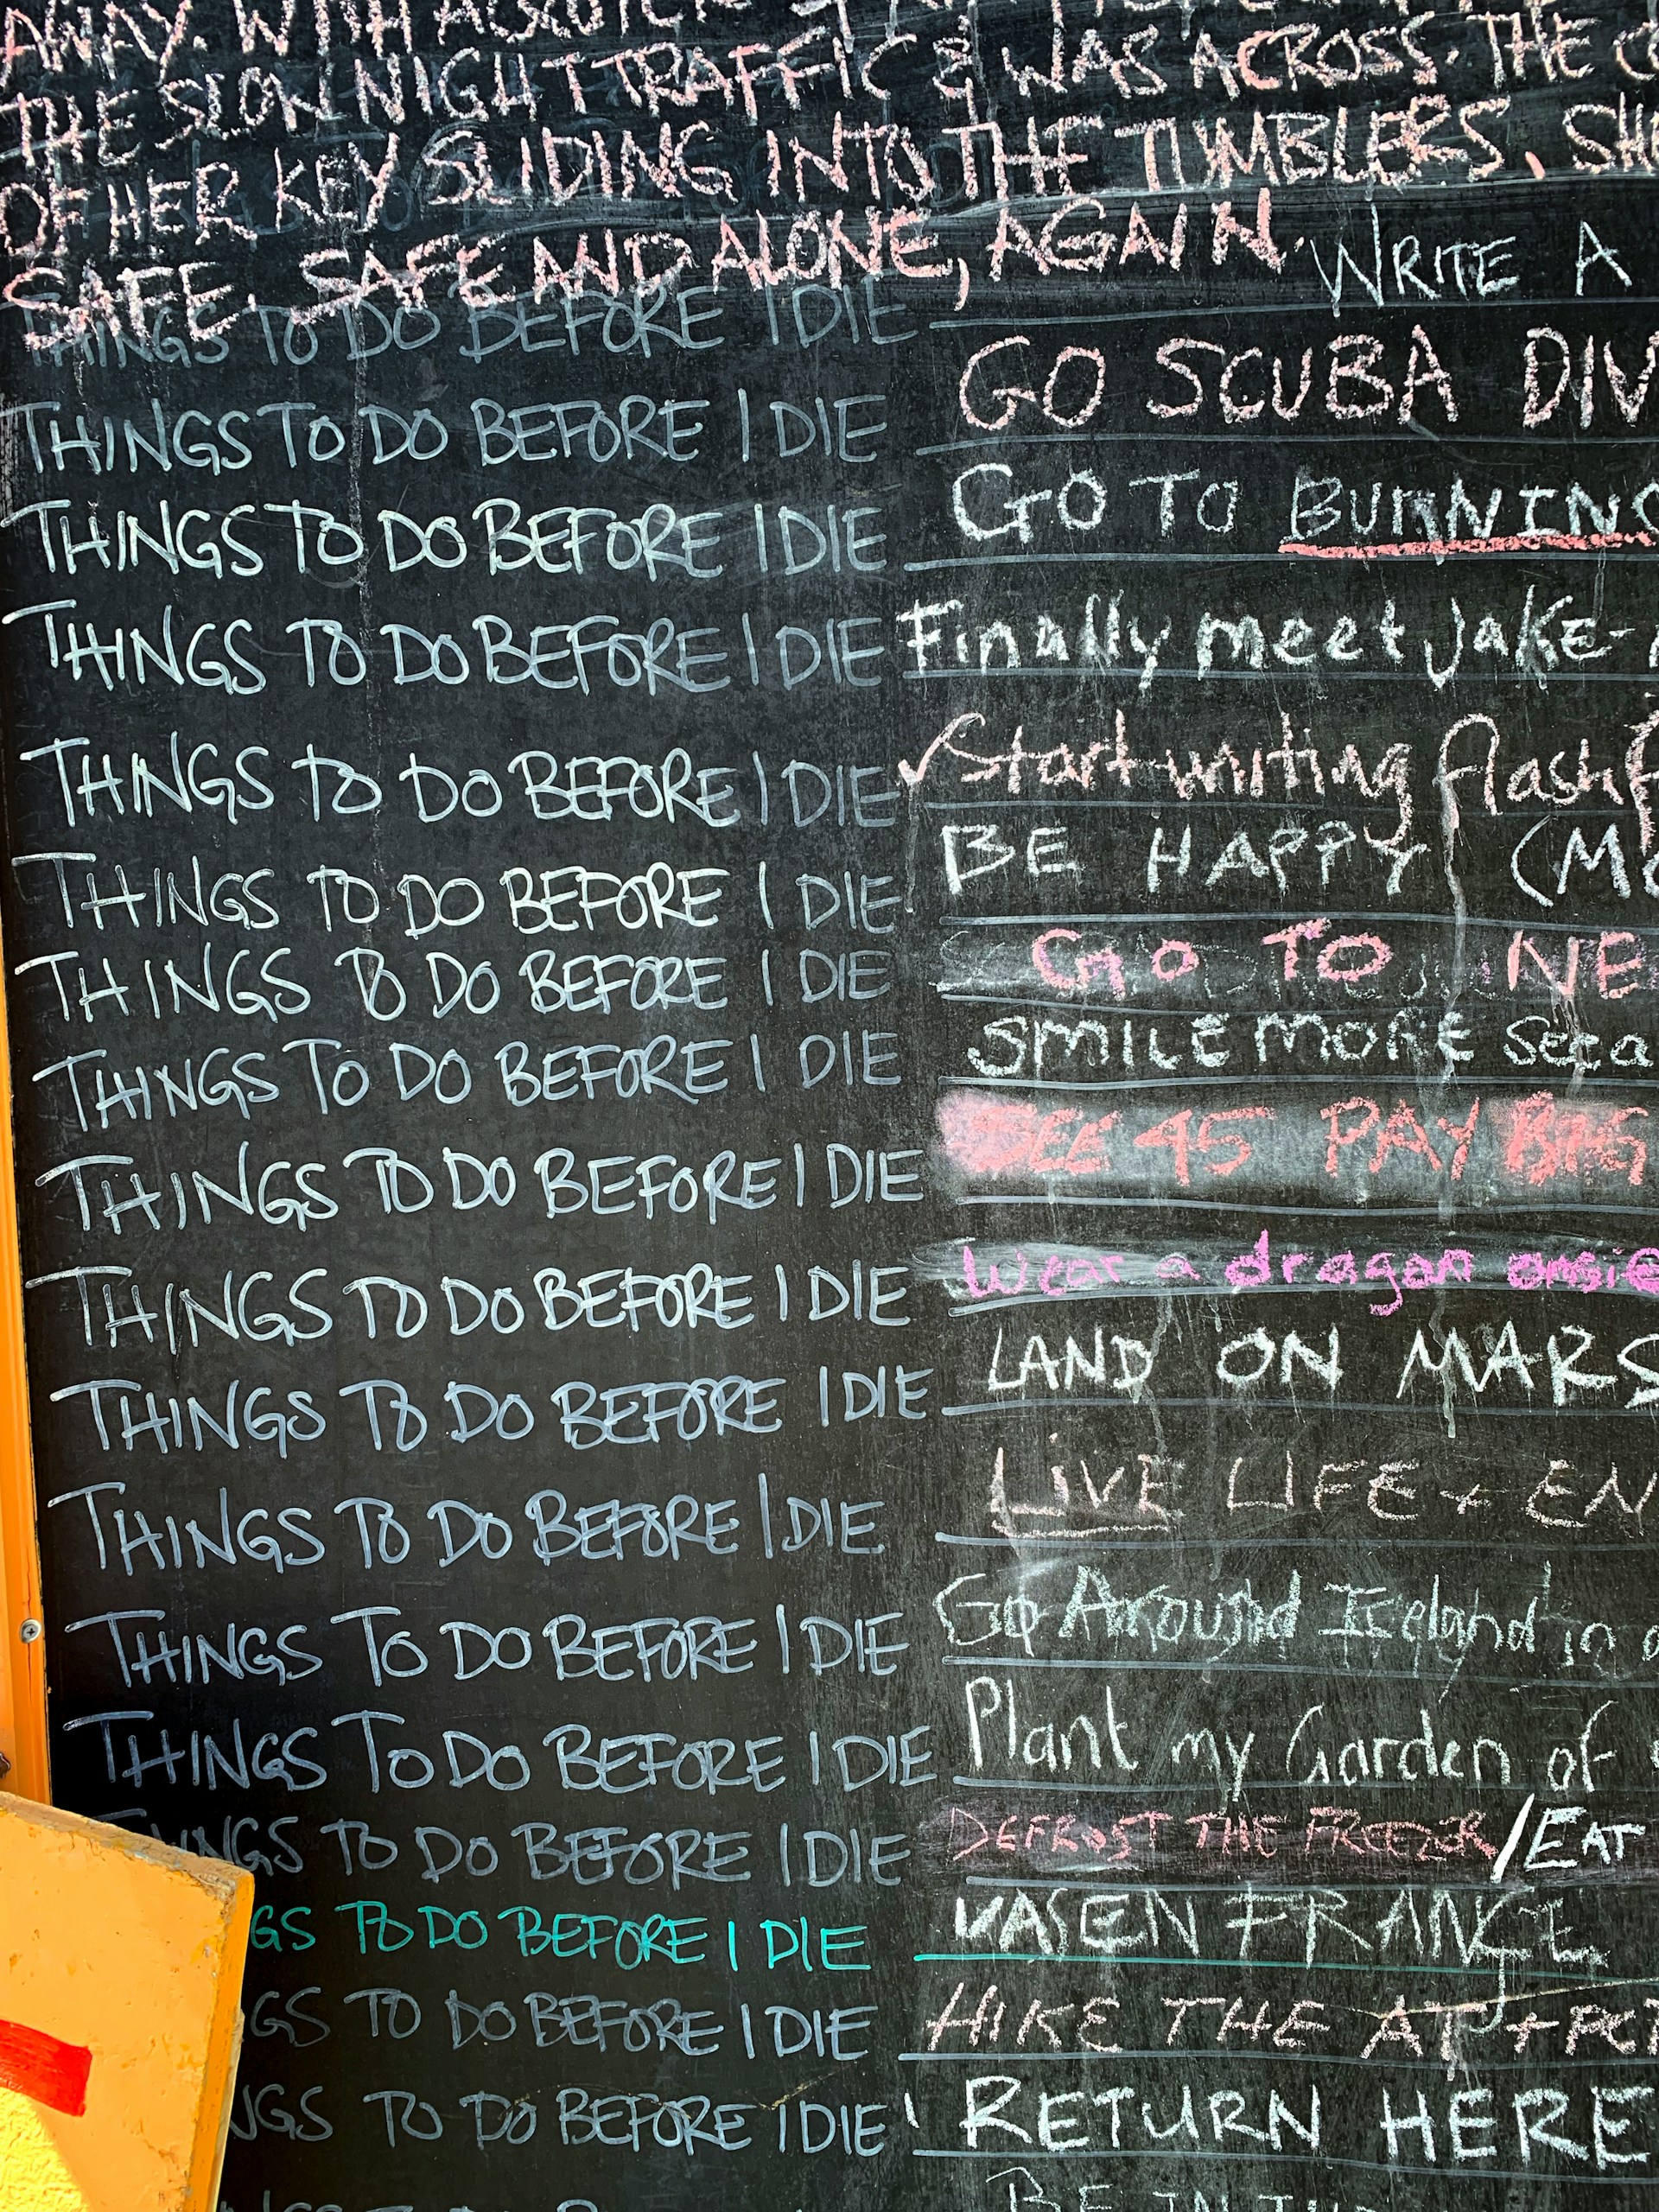 AWAY. WITH A QUICK
THE SLOW NIGHT TRAFFIC & WAS ACROSS. THE
OF HER KEY SLIDING INTO THE TUMBLERS. SH
SAFE. SAFE AND ALONE, AGAIN.
THINGS TO DO BEFORE I DIE WRITE A
THINGS TO DO BEFORE I DIE GO SCUBA DIV
THINGS TO DO BEFORE I DIE GO TO BURNING
THINGS TO DO BEFORE I DIE Finally meet Jake-
THINGS TO DO BEFORE I DIE ✓ Start writing flash f
THINGS TO DO BEFORE I DIE BE HAPPY (MO
THINGS TO DO BEFORE I DIE GO TO NE
THINGS TO DO BEFORE I DIE SMILE MORE
THINGS TO DO BEFORE I DIE SEE 45 PAY BIG
THINGS TO DO BEFORE I DIE Wear a dragon onsie
THINGS TO DO BEFORE I DIE LAND ON MARS
THINGS TO DO BEFORE I DIE LIVE LIFE + EN
THINGS TO DO BEFORE I DIE Go Around Iceland in a
THINGS TO DO BEFORE I DIE Plant my Garden of
THINGS TO DO BEFORE I DIE DEFROST THE FREEZER /EAT
GS TO DO BEFORE I DIE FRANCE
GS TO DO BEFORE I DIE HIKE THE AT + PCT
NGS TO DO BEFORE I DIE RETURN HERE
BE IN THE